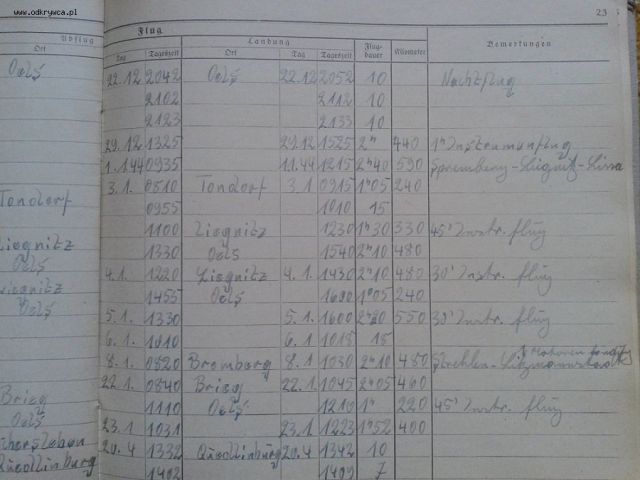 www.odkrywca.pl
23
Flug
Abflug Landung
Ort Tag Tageszeit Ort Tag Tageszeit Flugdauer Kilometer Bemerkungen
Oels 22.12 2042 Oels 22.12 2052 10 Nachtflug
2102 2112 10
2123 2133 10
29.12 1325 29.12 1525 2h 440 1h Instrumenflug
1.1.44 0935 1.1.44 1215 2h40 590 Spremberg-Liegnitz-Lissa
3.1. 0510 Tondorf 3.1 0915 1h05 240
Tondorf 0955 1010 15
1100 Liegnitz 1230 1h30 330 45' Instr. flug
Liegnitz 1330 Oels 1540 2h10 480
Oels 4.1. 1220 Liegnitz 4.1. 1430 2h10 480 30' Instr. flug
Liegnitz 1455 Oels 1600 1h05 240
Oels 5.1. 1330 5.1. 1600 550 30' Instr. flug
6.1. 1010 6.1 1015 15
8.1. 0820 Bromberg 8.1 1030 2h10 480 Strehlen-Litzmannstadt
22.1. 0840 Brieg 22.1. 1045 2h05 460
Brieg 1110 Oels 1210 1h 220 45' Instr. flug
Oels 23.1 1031 23.1 1223 1h52 400
chersleben 20.4 1332 Quedlinburg 20.4 1342 10
Quedlinburg 1402 1409 7